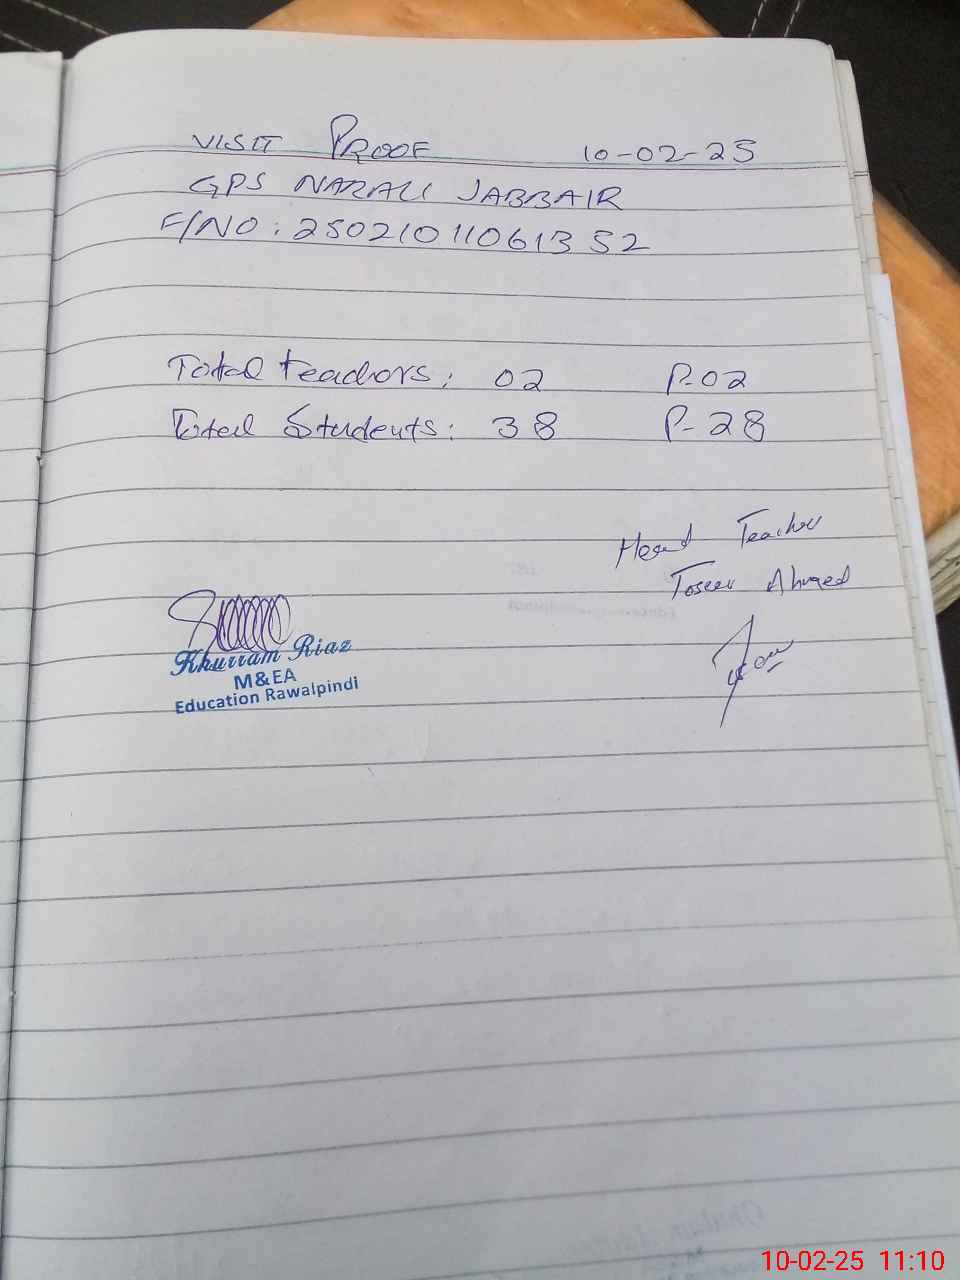 VISIT PROOF 10-02-25
GPS NARALI JABBAIR
F/NO: 25021011061352
Total teachors: 02 P-02
Total Students: 38 P-28
Head Teacher
Toseer Ahmed
Khurram Riaz
M&EA
Education Rawalpindi
10-02-25 11:10